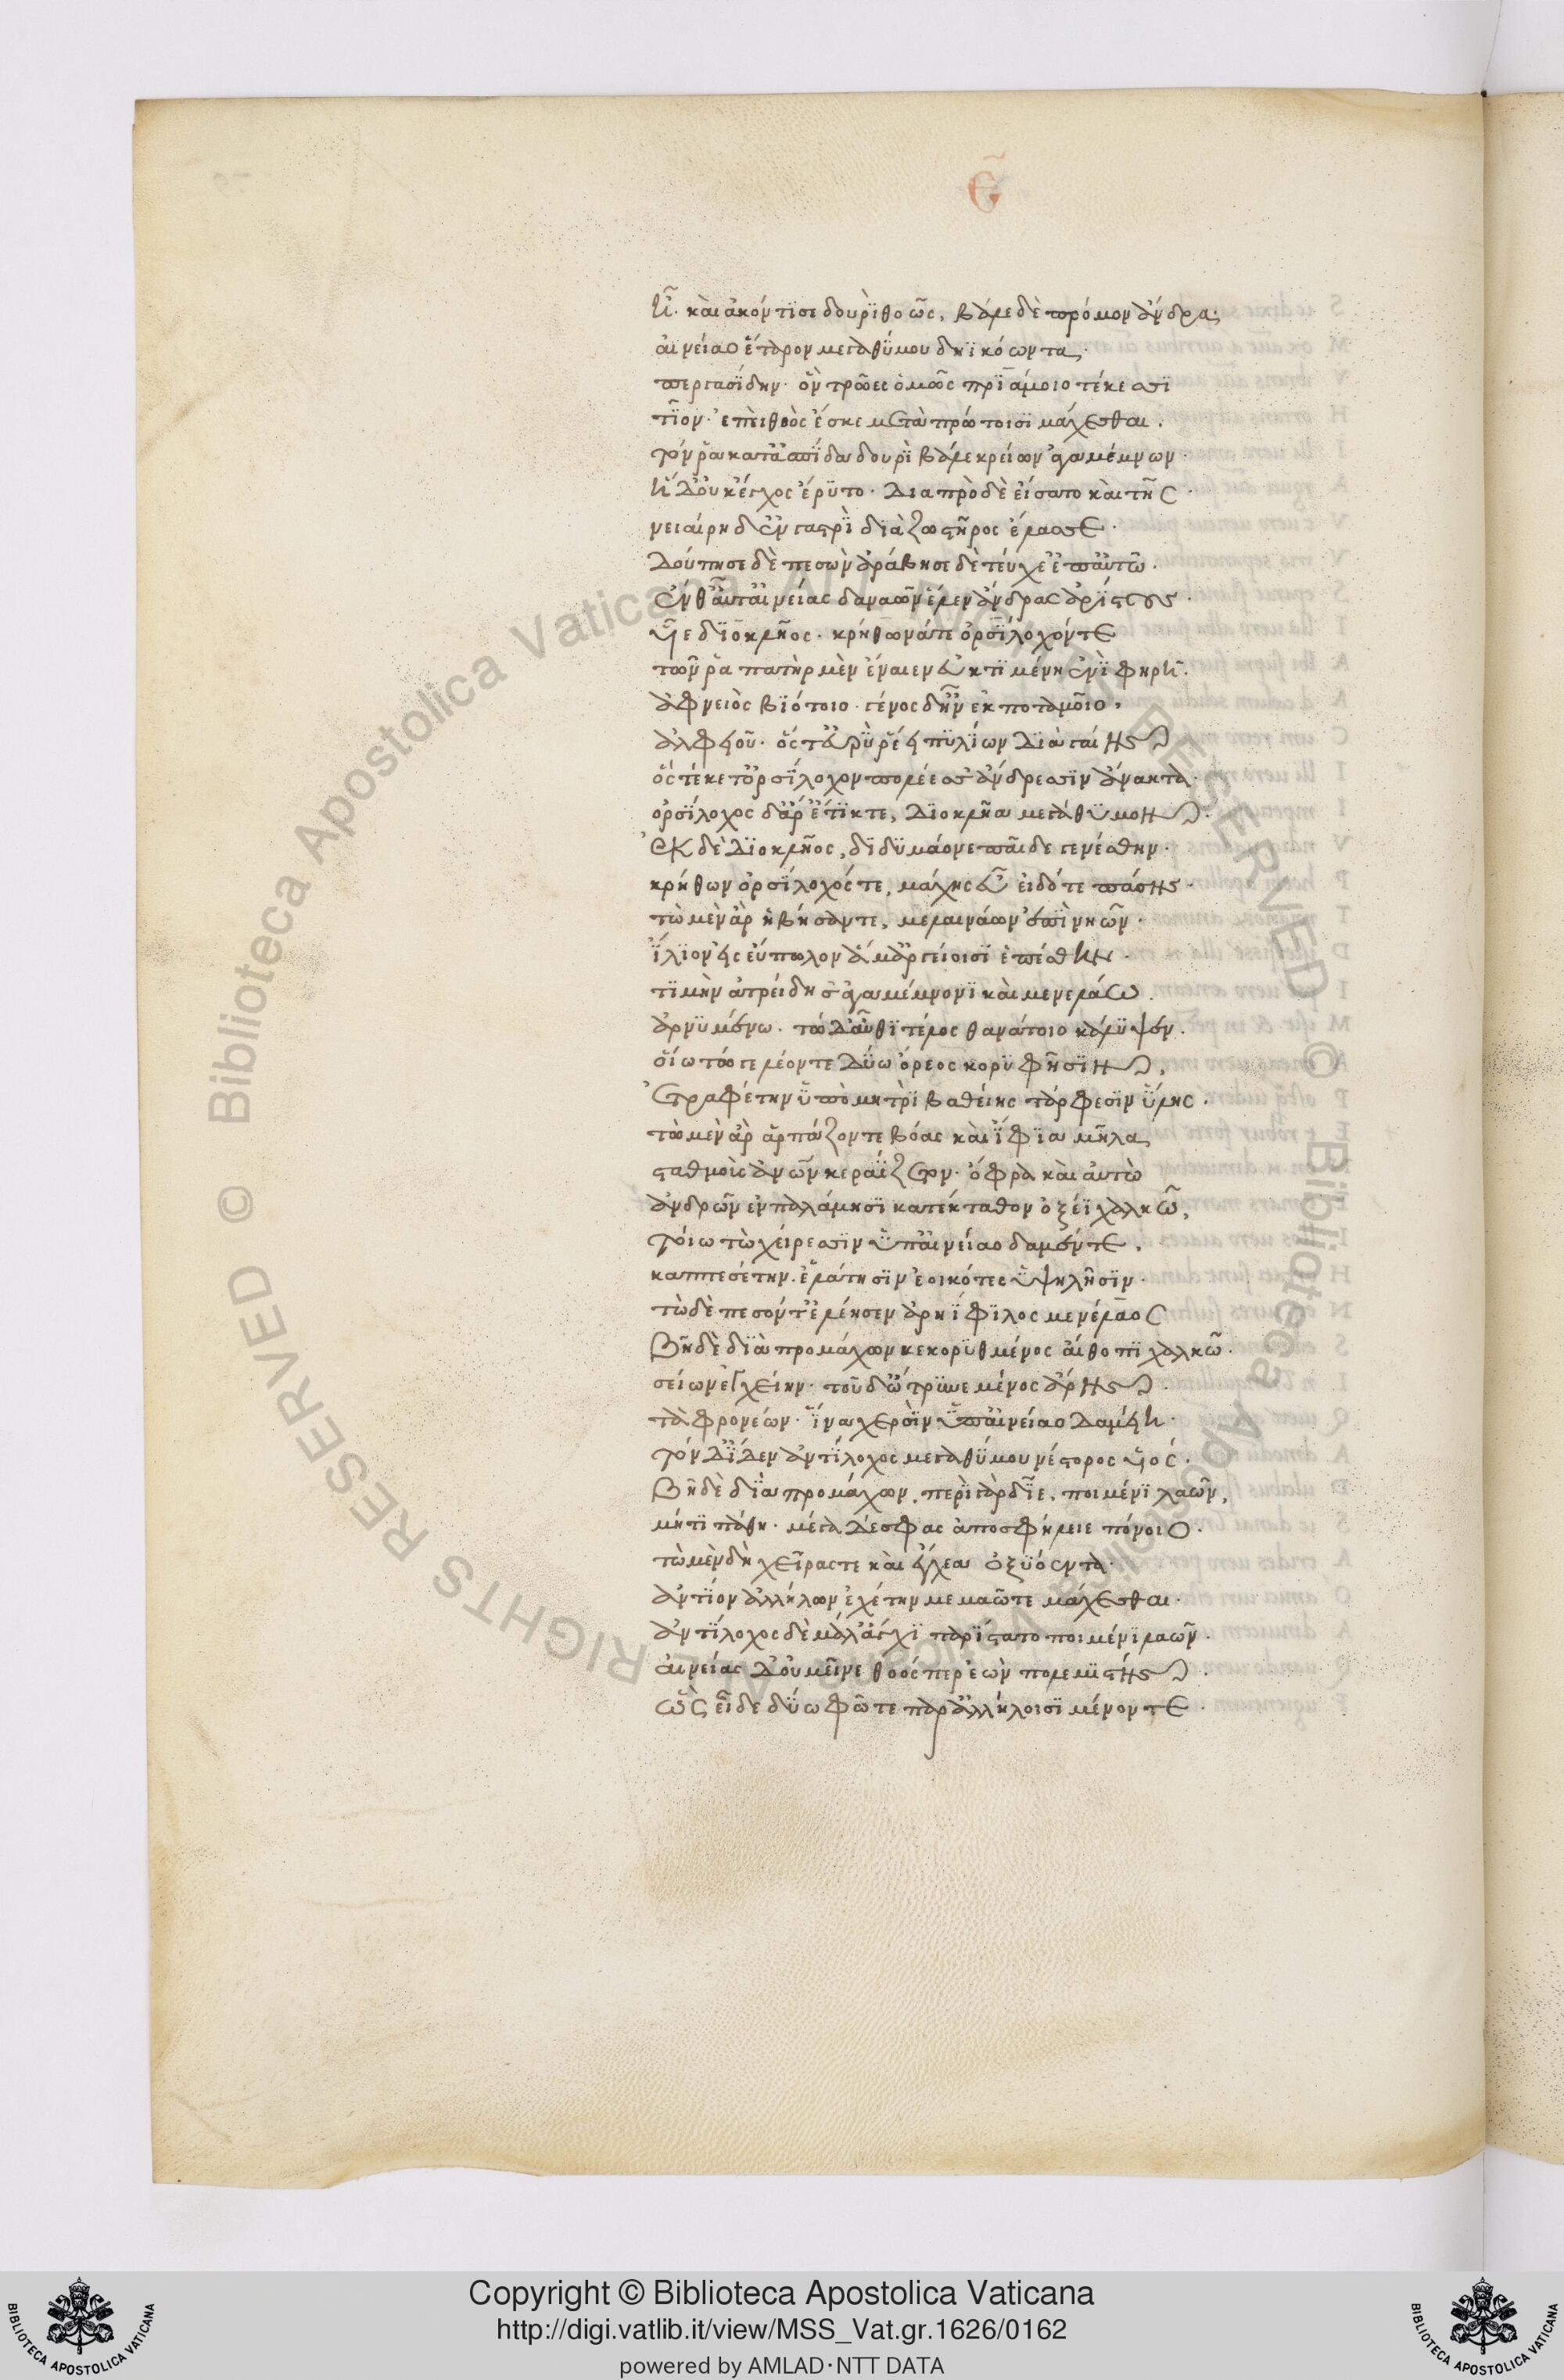 Ε̃
ἦ. καὶ ἀκόντϊσε δουρὶ θοῶς, βάλε δὲ πρόμον ἄνδρα,
αἰνείαο ἕταρον μεγαθύμου δηϊκόωντα,
περγασίδην· ὃν τρῶες ὁμῶς πριάμοιο τέκεσσϊ
τῖον· ἐπεὶ θοὸς ἔσκε μετὰ πρώτοισϊ μάχεσθαι.
τόν ῥα κατ' ἀσπίδα δουρὶ βάλε κρείων ἀγαμέμνων·
ἡ δ' οὐκ ἔγχος ἔρϋτο· διαπρὸ δὲ εἴσατο καὶ τῆς·
νειαίρη δ' ἐν γαστρὶ διὰ ζωστῆρος ἔλασσε·
δούπησε δὲ πεσὼν ἀράβησε δὲ τεύχε' ἐπ' αὐτῶ·
ἔνθ' αὖτ' αἰνείας δαναῶν ἕλεν ἄνδρας ἀρίστους·
υἷε διοκλῆος· κρήθωνά τε ὀρσίλοχόν τε
τῶν ῥα πατὴρ μὲν ἔναιεν ἐϋκτϊμένη ἐνὶ φηρῆ·
ἀφνειὸς βιότοιο· γένος δ' ἦν ἐκ ποταμοῖο,
ἀλφειοῦ· ὅς τ' εὐρὺ ῥέει πϋλίων διὰ γαίης
ὃς τέκετ' ὀρσίλοχον πολέεσσ' ἄνδρεσσϊν ἄνακτα·
ὀρσίλοχος δ' ἄρ' ἔτϊκτε, διοκλῆα μεγάθϋμον·
ἐκ δὲ διοκλῆος, διδϋμάονε παῖδε γενέσθην·
κρήθων ὀρσίλοχός τε, μάχης εὖ εἰδότε πάσης·
τὼ μὲν ἄρ' ἡβήσαντε, μελαινάων ἐπὶ νηῶν·
ἴλϊον εἰς εὔπωλον ἅμ' ἀργείοισϊ ἑπέσθην·
τϊμὴν ἀτρείδης ἀγαμέμνονϊ καὶ μενελάω.
ἀρνϋμένω· τὼ δ' αὖθϊ τέλος θανάτοιο κάλϋψεν.
οἵω τώ γε λέοντε δύω ὄρεος κορϋφῆσϊν,
ἐτραφέτην ὑπὸ μητρὶ βαθείης τάρφεσϊν ὕλης.
τὼ μὲν ἄρ' ἁρπάζοντε βόας καὶ ἴφϊα μῆλα,
σταθμοὺς ἀνῶν κεραΐζετον· ὄφρα καὶ αὐτὼ
ἀνδρῶν ἐν παλάμησϊ κατέκταθον ὀξέϊ χαλκῶ,
τοίω τὼ χείρεσσϊν ὑπ' αἰνείαο δαμέντε.
καππεσέτην· ἐλάτησϊν ἐοικότες ὑψηλῆσϊν·
τὼ δὲ πεσόντ' ἐλέησεν ἀρηΐφϊλος μενέλαος
βῆ δὲ διὰ προμάχων κεκορϋθμένος αἴθοπϊ χαλκῶ·
σείων ἐγχείην· τοῦ δ' ὤτρυνε μένος ἄρης·
τὰ φρονέων· ἵνα χερσὶν ὑπ' αἰνείαο δαμείη·
τὸν δ' ἴδεν ἀντίλοχος μεγαθύμου νέστορος υἱός.
βῆ δὲ διὰ προμάχων, περὶ γὰρ δῖε, ποιμένϊ λαῶν,
μή τϊ πάθη· μέγα δέ σφας ἀποσφήλειε πόνοιο.
τὼ μὲν δὴ χεῖράς τε καὶ ἔγχεα ὀξϋόεντα·
ἀντίον ἀλλήλων ἐχέτην μεμαῶτε μάχεσθαι·
ἀντίλοχος δὲ μάλ' ἄγχϊ παρίστατο ποιμένϊ λαῶν·
αἰνείας δ' οὐ μεῖνε θοός περ ἐὼν πολεμιστής·
ὡς εἶδε δύω φῶτε παρ' ἀλλήλοισϊ μένοντε·
© Biblioteca Apostolica Vaticana ALL RIGHTS RESERVED © Biblioteca Apostolica Vaticana ALL RIGHTS RESERVED
Copyright © Biblioteca Apostolica Vaticana
http://digi.vatlib.it/view/MSS_Vat.gr.1626/0162
powered by AMLAD·NTT DATA
BIBLIOTECA APOSTOLICA VATICANA
BIBLIOTECA APOSTOLICA VATICANA